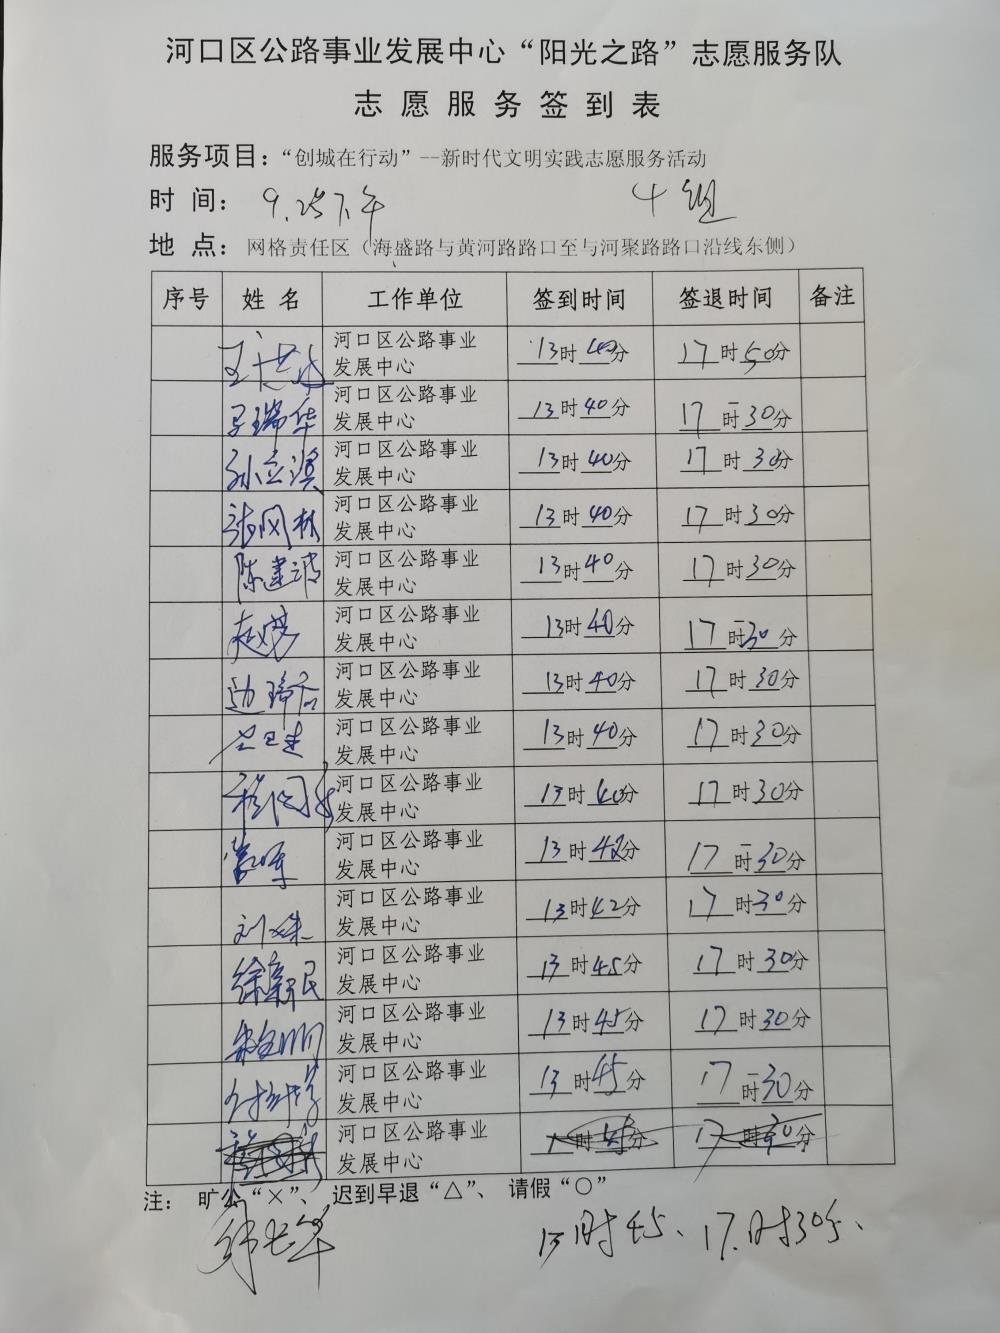 河口区公路事业发展中心“阳光之路”志愿服务队
志愿服务签到表
服务项目：“创城在行动”--新时代文明实践志愿服务活动
时 间： 9.25下午 4组
地 点： 网格责任区（海盛路与黄河路路口至与河聚路路口沿线东侧）
序号 姓名 工作单位 签到时间 签退时间 备注
河口区公路事业
发展中心 13时40分 17时50分
马瑞华 河口区公路事业
发展中心 13时40分 17时30分
孙立滨 河口区公路事业
发展中心 13时40分 17时30分
张风林 河口区公路事业
发展中心 13时40分 17时30分
陈建波 河口区公路事业
发展中心 13时40分 17时30分
河口区公路事业
发展中心 13时40分 17时30分
河口区公路事业
发展中心 13时40分 17时30分
河口区公路事业
发展中心 13时40分 17时30分
河口区公路事业
发展中心 13时40分 17时30分
河口区公路事业
发展中心 13时42分 17时30分
河口区公路事业
发展中心 13时42分 17时30分
徐新民 河口区公路事业
发展中心 13时45分 17时30分
河口区公路事业
发展中心 13时45分 17时30分
河口区公路事业
发展中心 13时45分 17时30分
河口区公路事业
发展中心 时 分 17时30分
注： 旷公“×”、 迟到早退“△”、 请假“○”
13时45、17时30分、